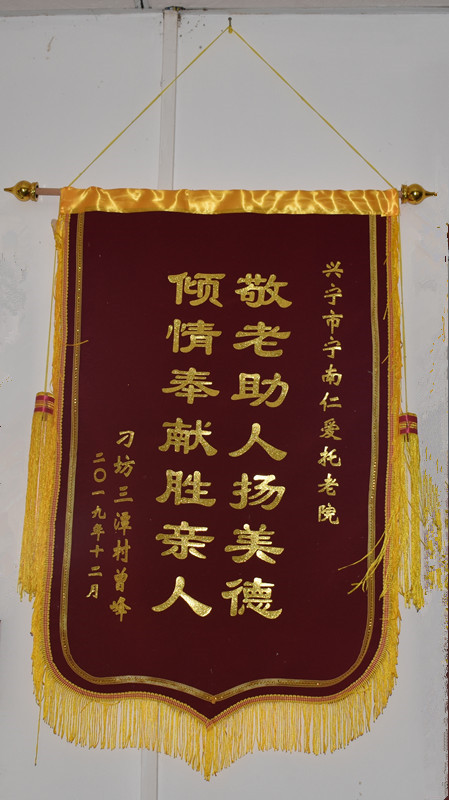 兴宁市宁南仁爱托老院
敬老助人扬美德
倾情奉献胜亲人
刁坊三潭村曾峰
二〇一九年十二月